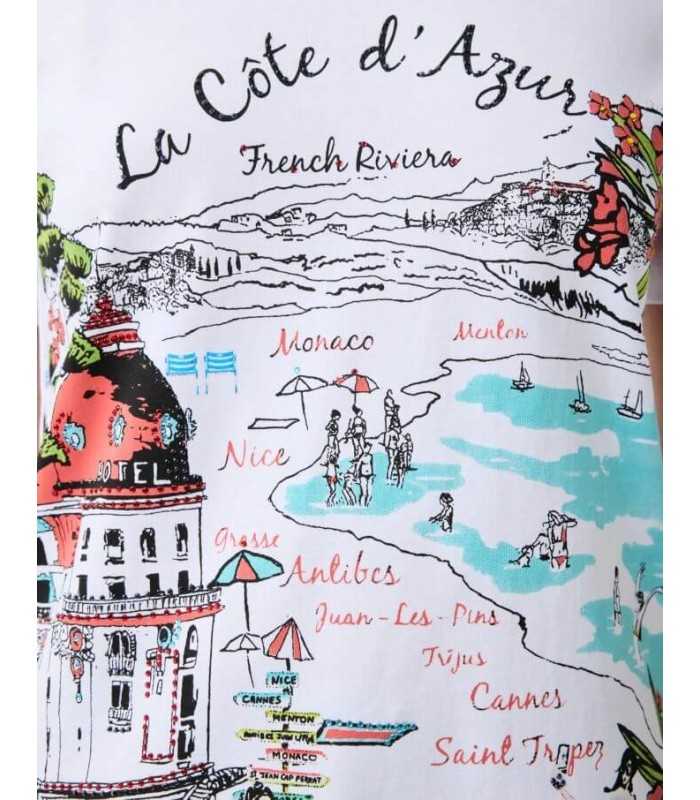 La Côte d'Azur
French Riviera
Monaco
Menton
Nice
Grasse
Antibes
Juan-Les-Pins
Frjus
Cannes
Saint Tropez
HOTEL
NICE
CANNES
MENTON
MONACO
ST JEAN CAP FERRAT